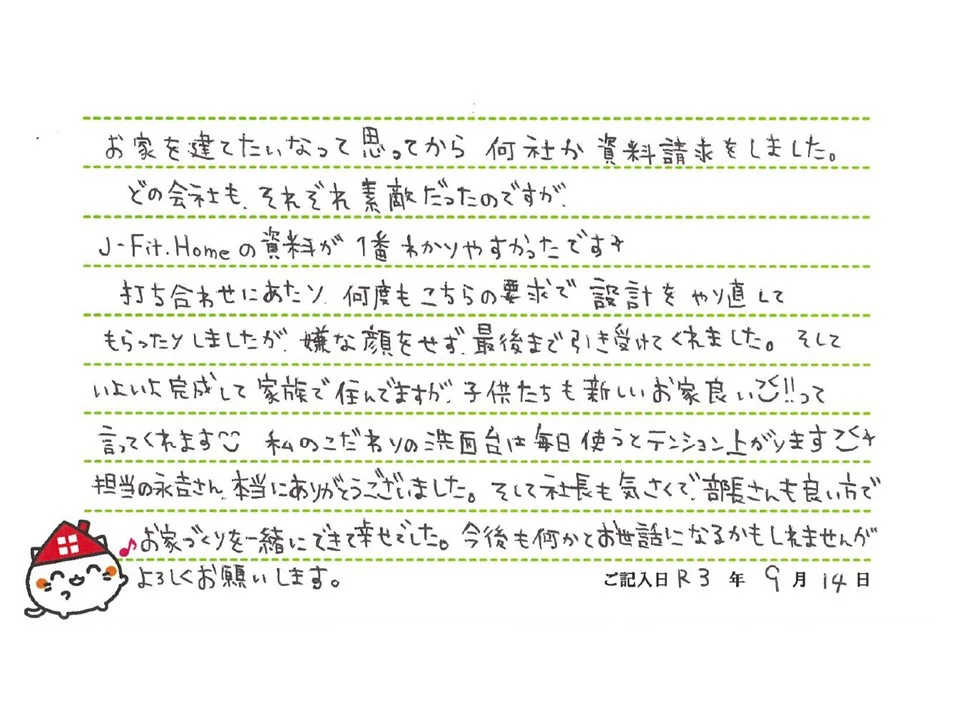 お家を建てたいなって思ってから 何社か 資料請求をしました。
どの会社も、それぞれ素敵だったのですが、
J-Fit.Homeの資料が 1番 わかりやすかったです
打ち合わせにあたり、何度もこちらの要求で 設計を やり直して
もらったりしましたが、嫌な顔をせず、最後まで引き受けてくれました。 そして
いよいよ完成して 家族で住んでますが、子供たちも新しいお家良い!!って
言ってくれます 私のこだわりの洗面台は毎日使うとテンション上がります
担当の永吉さん、本当にありがとうございました。そして社長も気さくで、部長さんも良い方で
お家づくりを一緒にできて幸せでした。今後も何かとお世話になるかもしれませんが
よろしくお願いします。 ご記入日 R3 年 9 月 14 日